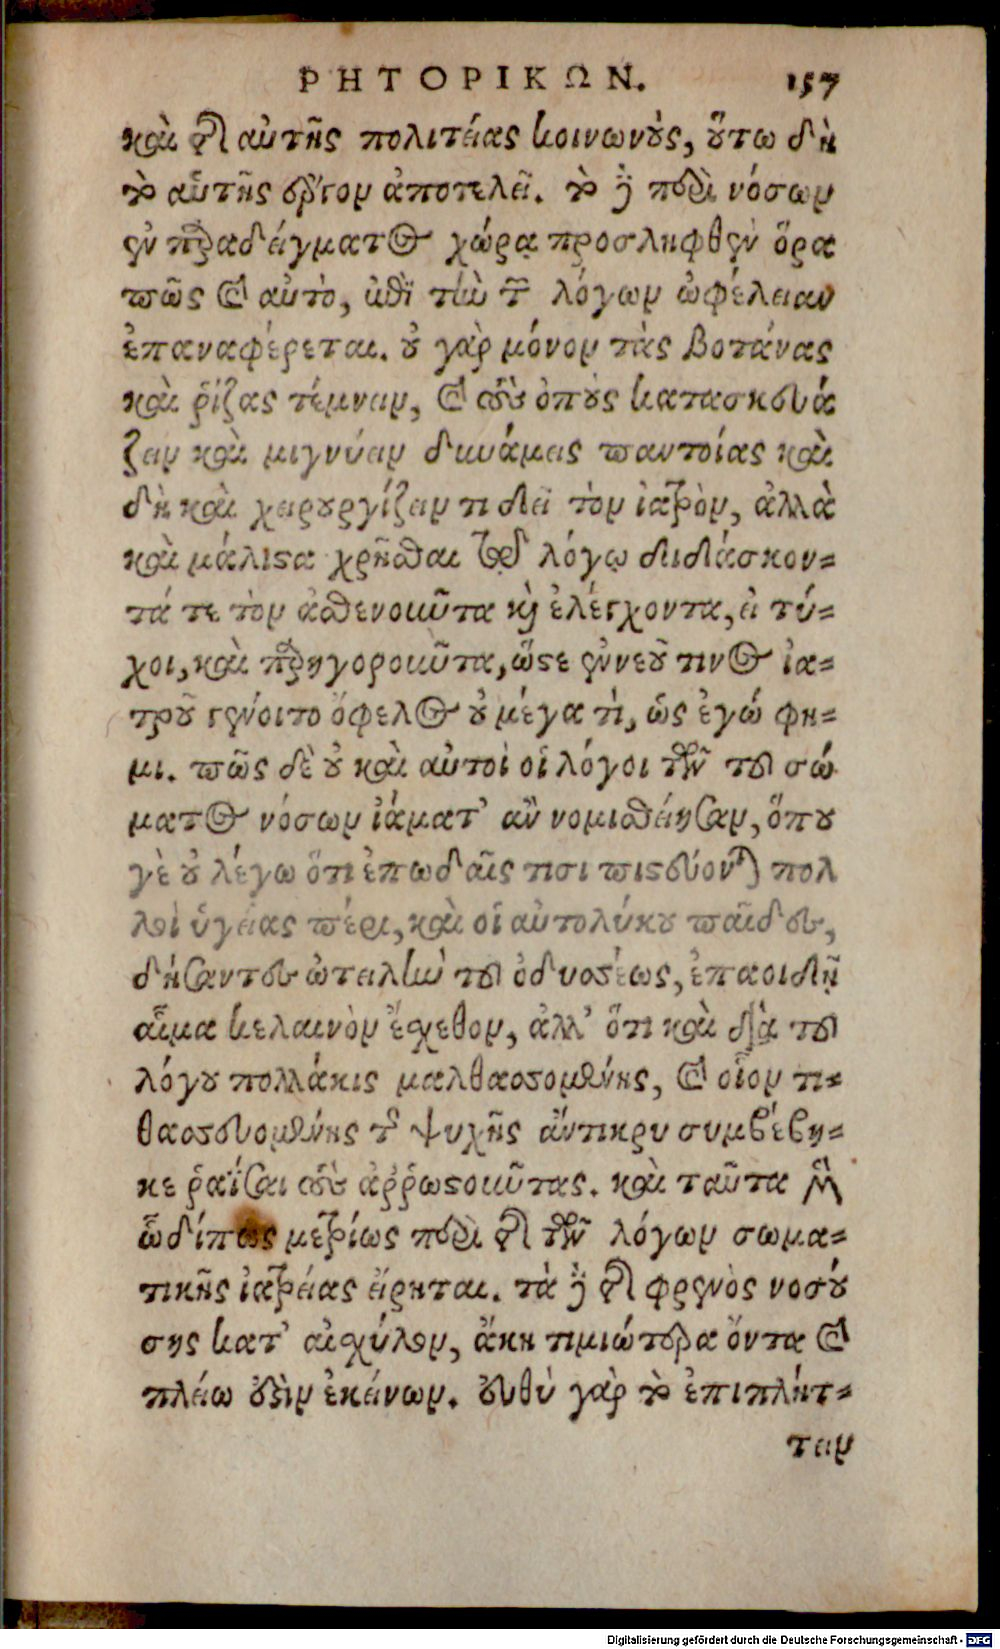 ΡΗΤΟΡΙΚΩΝ. 157
καὶ τῆς αὐτῆς πολιτείας κοινωνούς, οὕτω δὴ
τὸ αὑτῆς ἔργον ἀποτελεῖ. τὸ δὲ περὶ νόσων
ἐν παραδείγματος χώρᾳ προσληφθὲν ὅρα
πῶς καὶ αὐτὸ, ἐπὶ τὴν τῶν λόγων ὠφέλειαν
ἐπαναφέρεται. οὐ γὰρ μόνον τὰς βοτάνας
καὶ ῥίζας τέμνειν, καὶ τοὺς ὀποὺς κατασκευά
ζειν καὶ μιγνύειν δυνάμεις παντοίας καὶ
δὴ καὶ χειρουργίζειν τι δεῖ τὸν ἰατρὸν, ἀλλὰ
καὶ μάλιστα χρῆσθαι τῷ λόγῳ διδάσκον-
τά τε τὸν ἀσθενοῦντα καὶ ἐλέγχοντα, εἰ τύ-
χοι, καὶ παρηγοροῦντα, ὥστε ἐννεοῦ τινος ἰα-
τροῦ γένοιτο ὄφελος οὐ μέγα τὶ, ὡς ἐγώ φη-
μι. πῶς δὲ οὐ καὶ αὐτοὶ οἱ λόγοι τῶν τοῦ σώ
ματος νόσων ἰάματ' ἂν νομισθείησαν, ὅπου
γὲ οὐ λέγω ὅτι ἐπωδαῖς τισι πιστεύονται πολ
λοὶ ὑγείας πέρι, καὶ οἱ αὐτολύκου παῖδες,
δήσαντες ὠτειλὴν τοῦ ὀδυσσέως, ἐπαοιδῇ
αἷμα κελαινὸν ἔσχεθον, ἀλλ' ὅτι καὶ διὰ τοῦ
λόγου πολλάκις μαλθασσομένης, καὶ οἷον τι-
θασσευομένης τῆς ψυχῆς ἄντικρυ συμβέβη-
κε ῥαΐσαι τοὺς ἀῤῥωστοῦντας. καὶ ταῦτα μὲν
ὧδίπως μετρίως περὶ τῆς τῶν λόγων σωμα-
τικῆς ἰατρείας εἴρηται. τὰ δὲ τῆς φρενὸς νοσού
σης κατ' αἰσχύλον, ἄκη τιμιώτερα ὄντα καὶ
πλείω ἐστὶν ἐκείνων. εὐθὺ γὰρ τὸ ἐπιπλήτ-
τειν
Digitalisierung gefördert durch die Deutsche Forschungsgemeinschaft - DFG